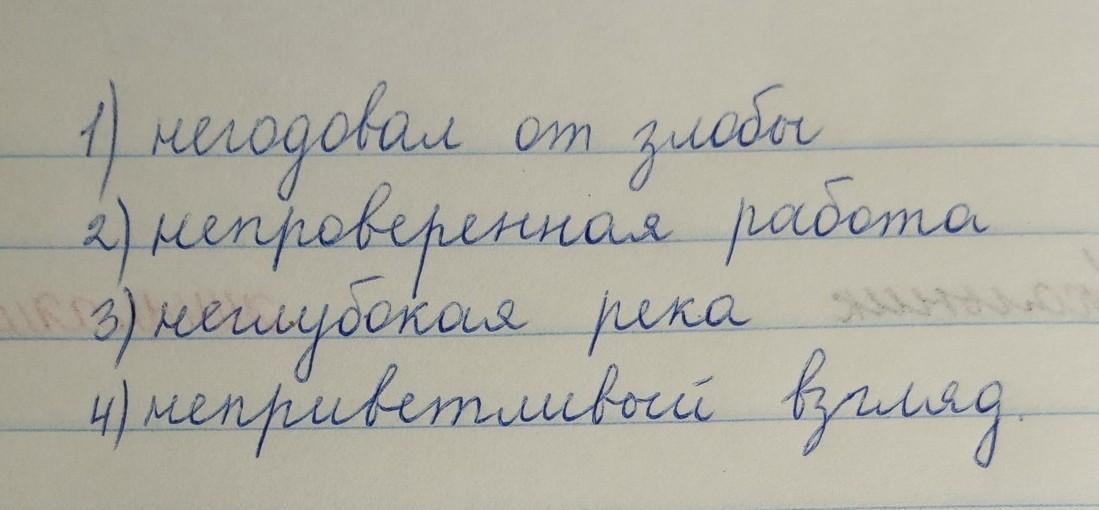 1) негодовал от злобы
2) непроверенная работа
3) неглубокая река
4) неприветливый взгляд.